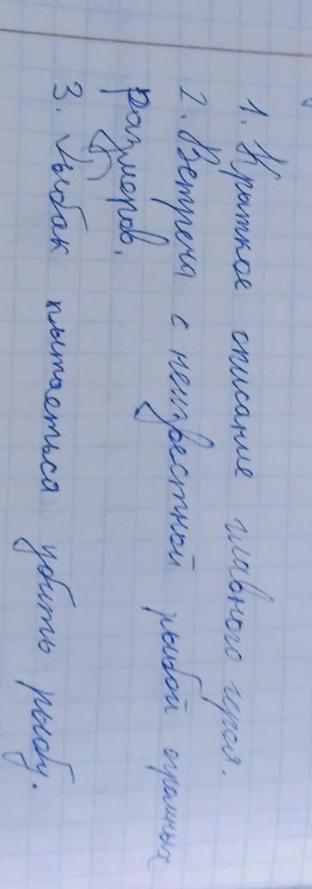 1. Крыткое описание главного героя.
2. Встреча с неизвестной рыбой огромных
размеров.
3. Рыбак пытаеться убить рыбу.